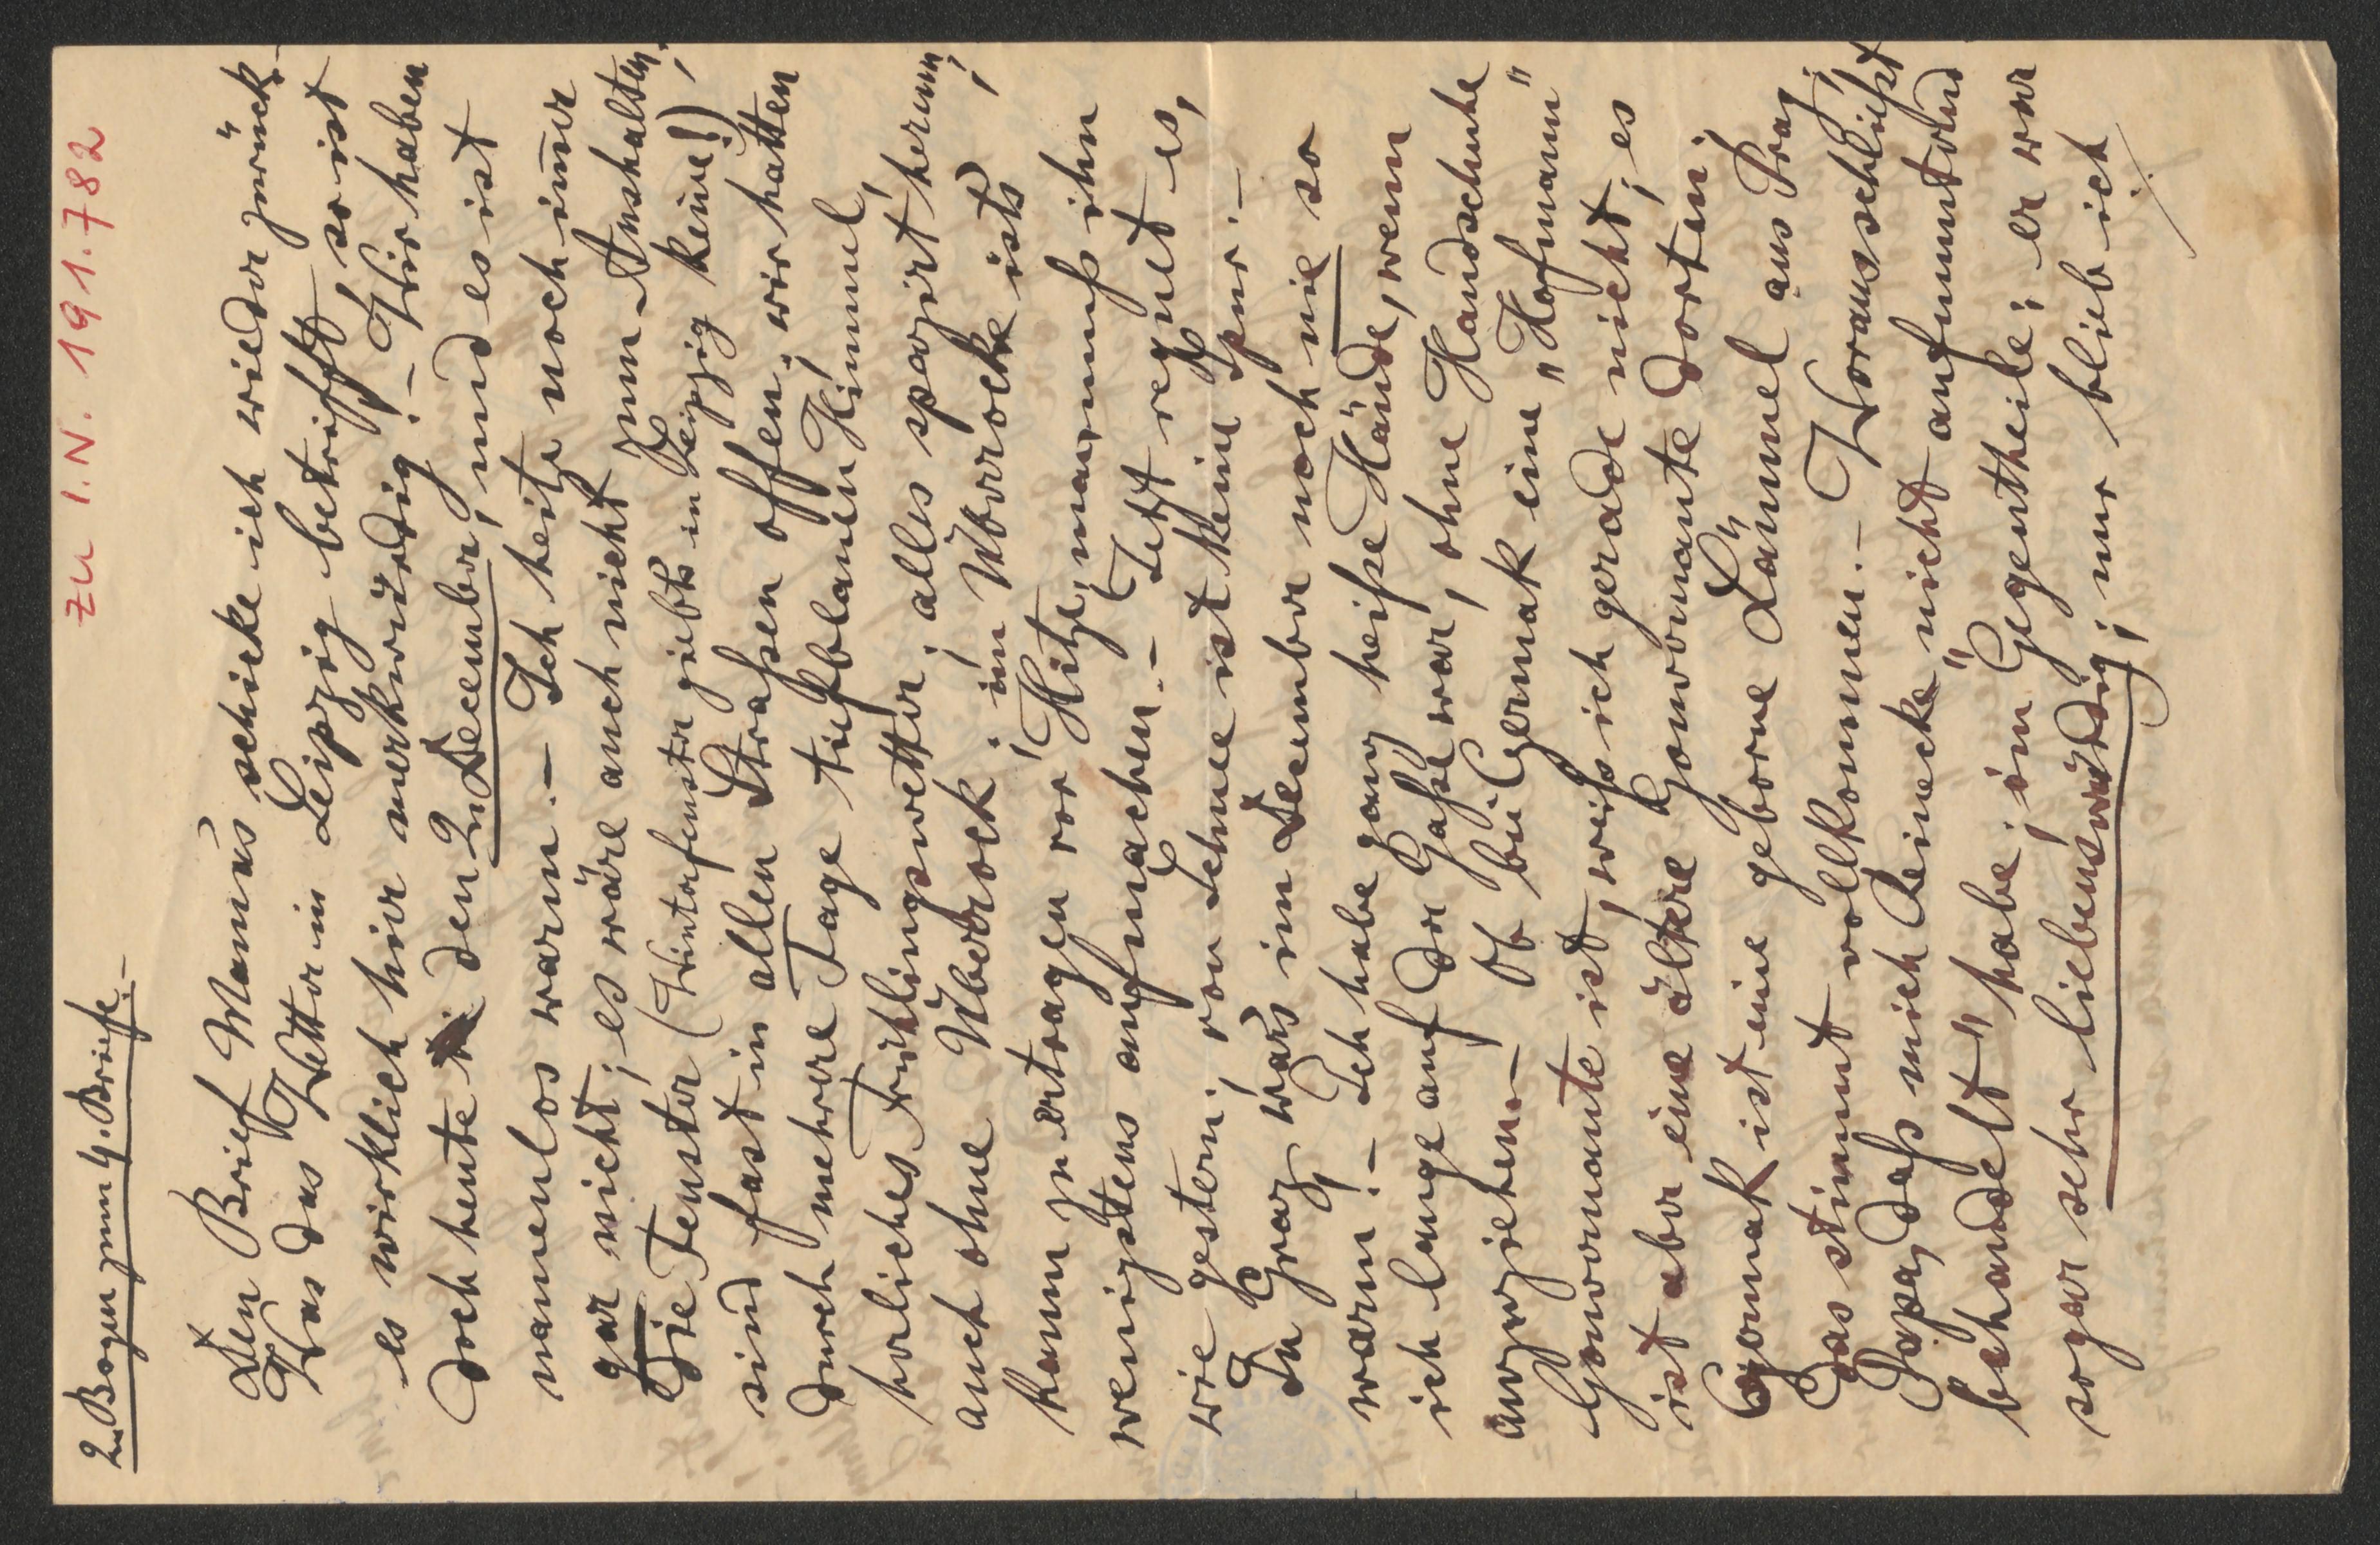 zu I.N. 191.782
2. Bogen zum 4. Briefe.-
Den Brief Mamas schicke ich wieder zurück.-
Was das Wetter in Leipzig betrifft, so ist
es wirklich hier merkwürdig!- Wir haben
doch heute den 2. December, und es ist
namenlos warm.- Ich heitze noch immer
gar nicht; es wäre auch nicht zum Aushalten;
die Fenster (Winterfenster giebts in Leipzig keine!)
sind fast in allen Straßen offen; wir hatten
durch mehrere Tage tiefblauen Himmel,
herliches Frühlingswetter; alles spazirt herum,
auch ohne Überrock; im Überrocke ists
kaum zu ertragen vor Hitze, man muß ihn
wenigstens aufmachen.- Jetzt regnet es,
wie gestern; von Schnee ist keine Spur.-
In Graz war's im December noch nie so
warm!- Ich habe ganz heiße Hände, wenn
ich lange auf der Gasse war, ohne Handschuhe
anzuziehen.- Ob bei Czermak eine „Hofmann"
Gouvernante ist, weiß ich gerade nicht; es
ist aber eine ältere Gouvernante dorten;
Czermak ist eine geborne Lämmel aus Prag;
das stimmt vollkommen.- Woraus schließt
Papa, daß mich Reinecke „nicht aufmunternd
behandelt" habe; im Gegentheile; er war
sogar sehr liebenswürdig; nur blieb ich
./.